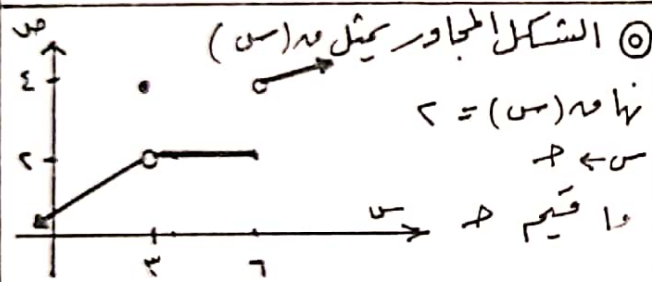 ◎ الشكل المجاور يمثل ق(س)
نها ق(س) = ٢
س ← جـ
ما قيم جـ
ص
٤
٢
س
٣
٦